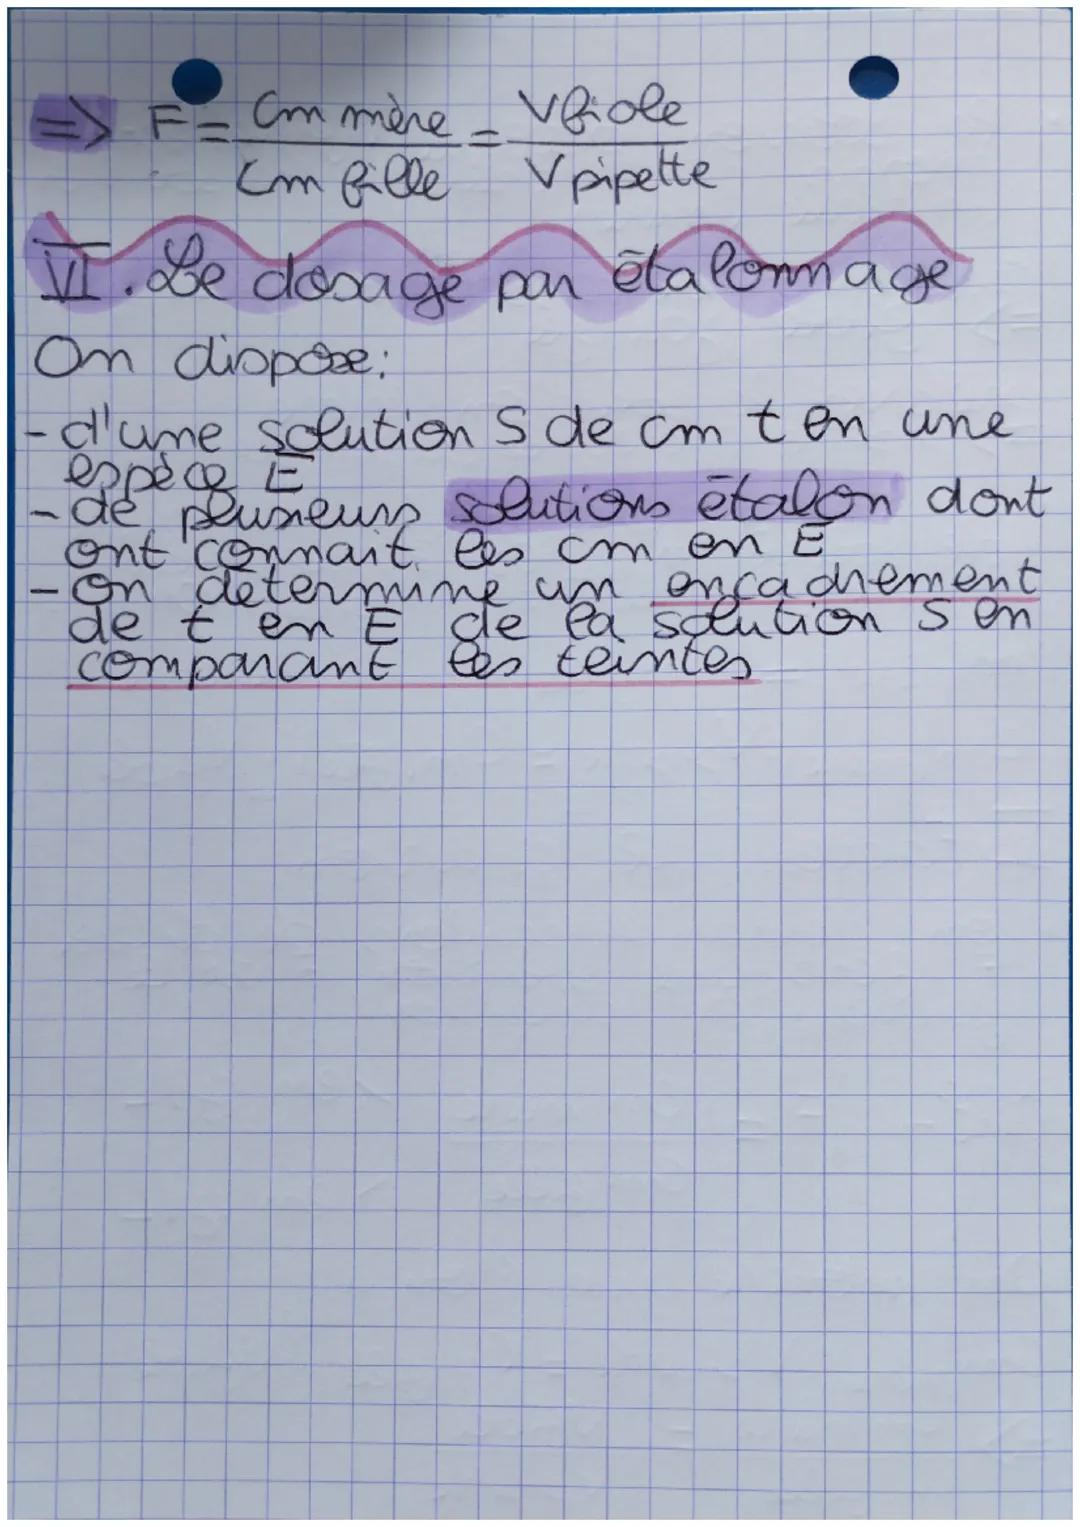 => F = Cm mère / Cm fille = V fiole / V pipette
VI. Le dosage par étalonnage
On dispose:
- d'une solution S de cm t en une
espèce E
- de plusieurs solutions étalon dont
ont connait les cm en E
- on détermine un encadrement
de t en E de la solution S en
comparant les teintes